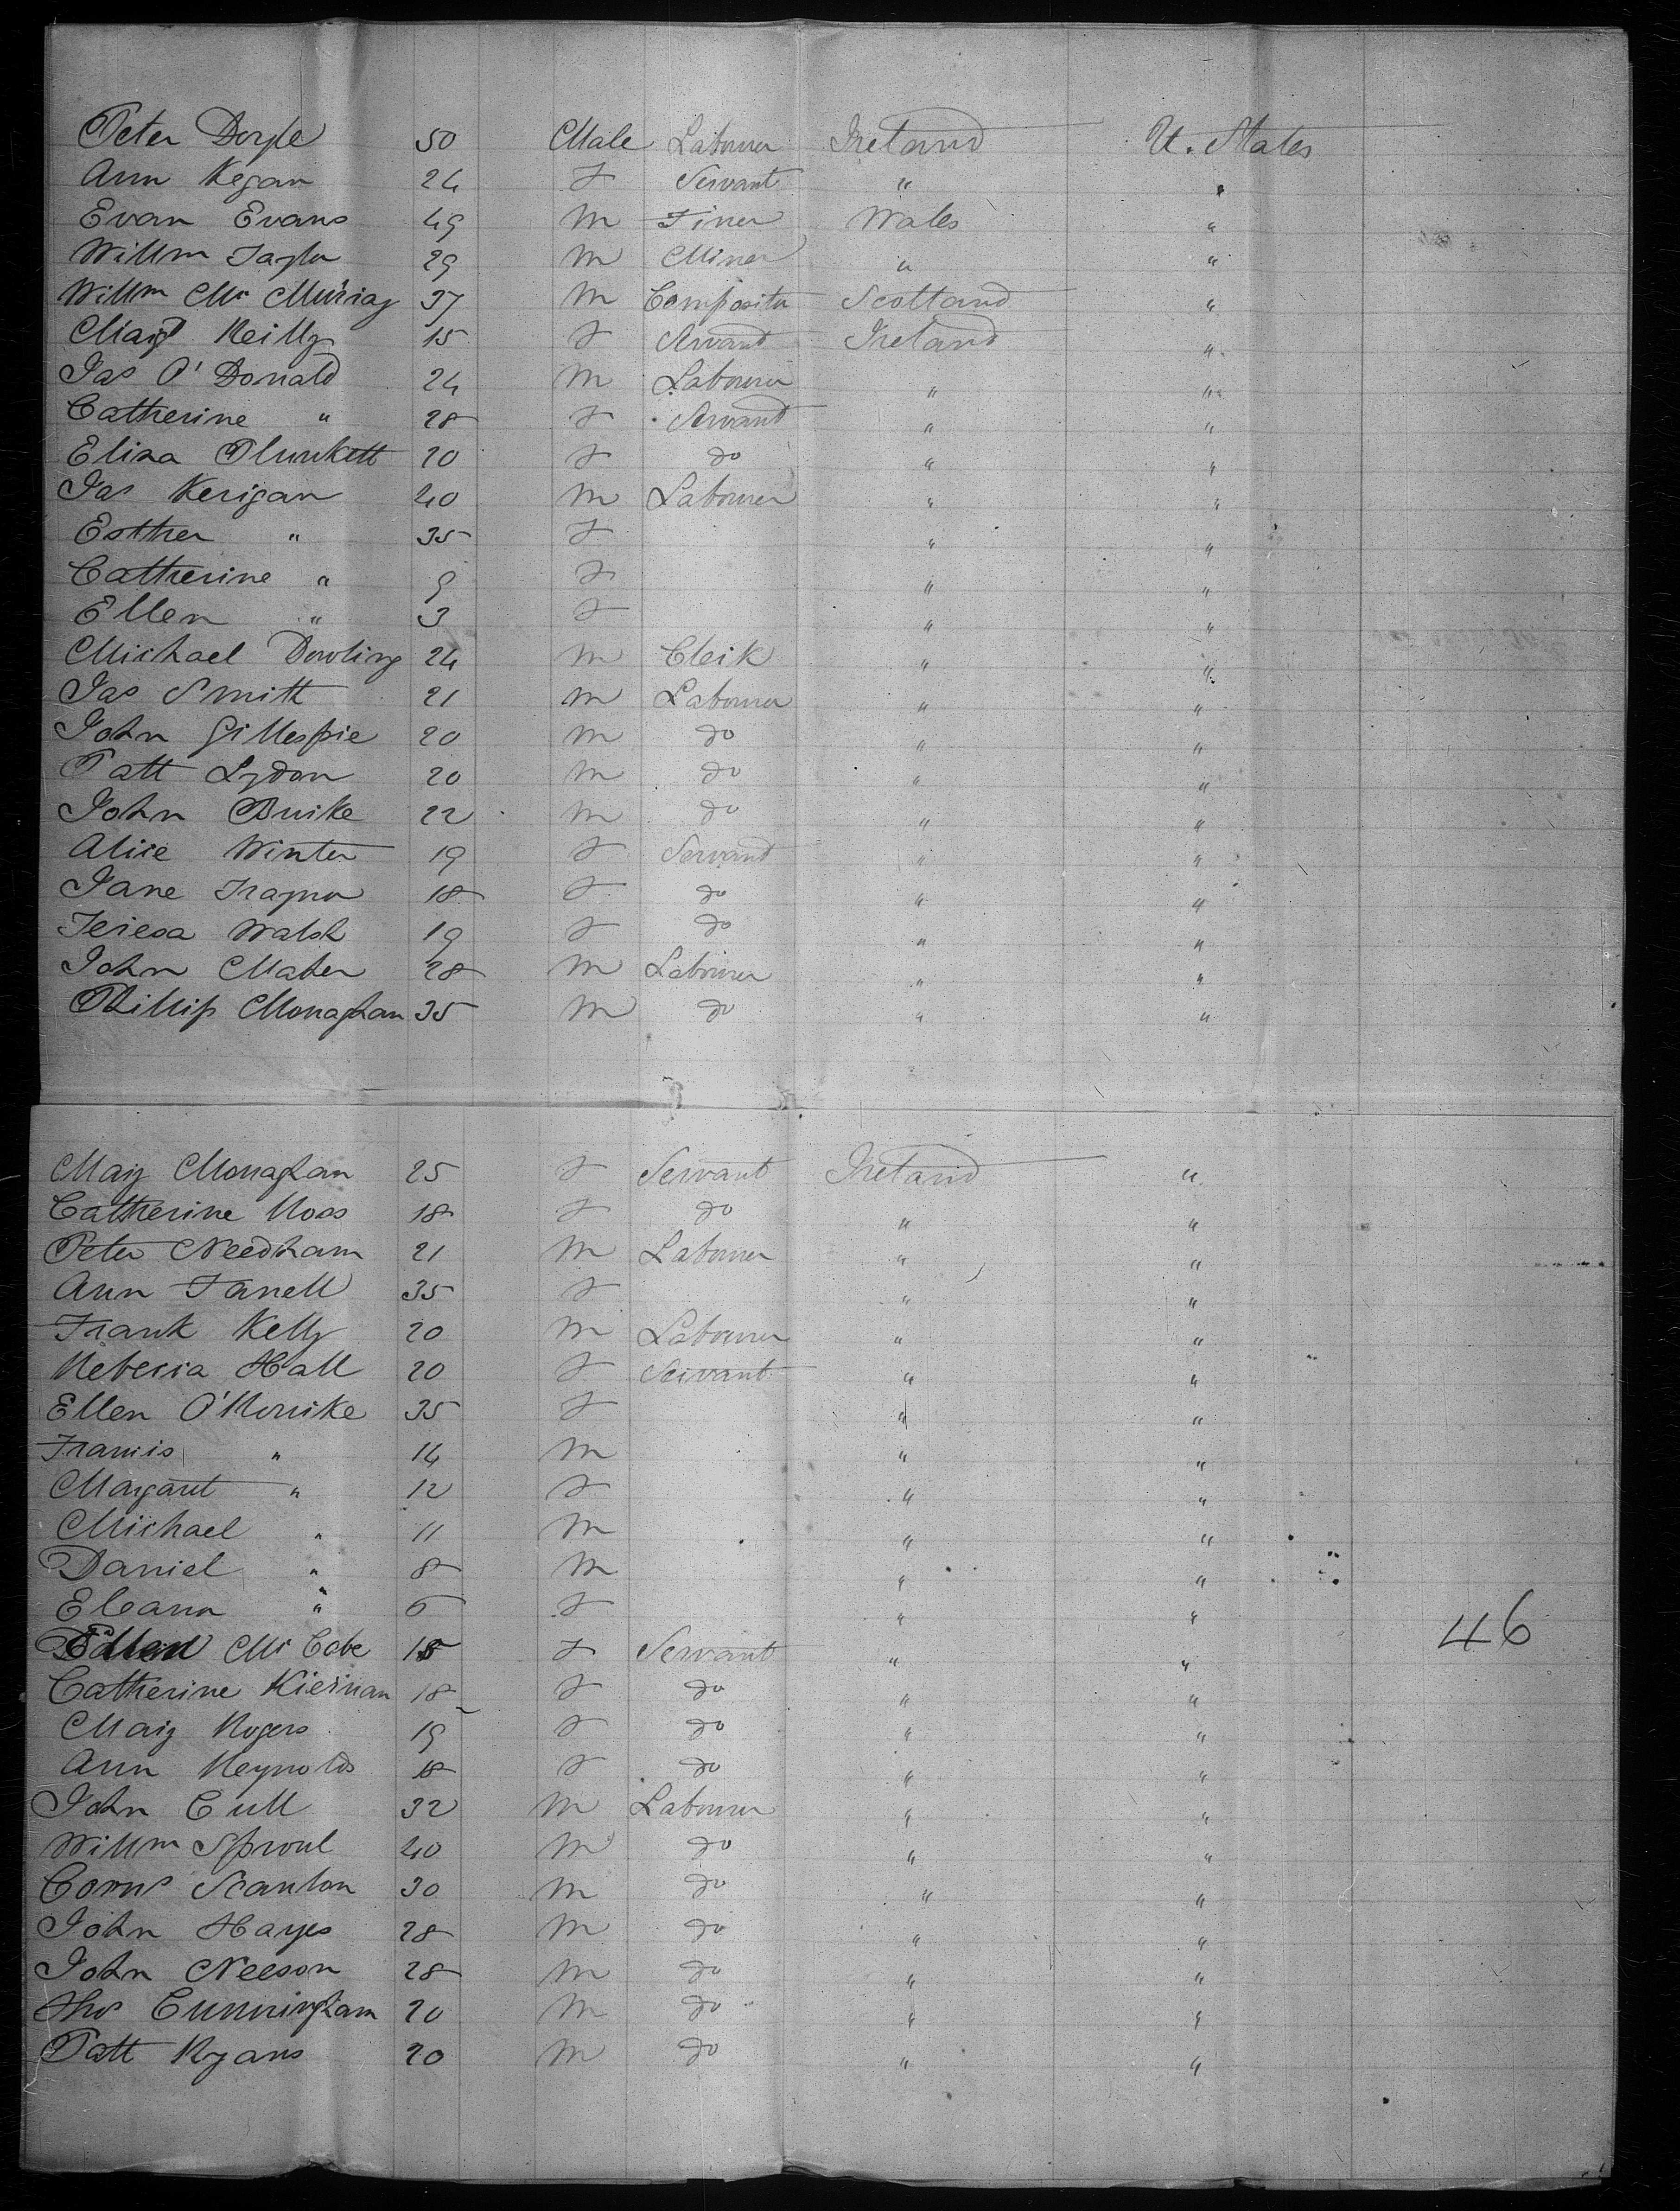 Peter Doyle 50 Male Labourer Ireland U. States
Ann Kegan 24 F Servant " "
Evan Evans 49 M Finer Wales "
Willm Taylor 29 M Miner " "
Willm Mc Murray 37 M Compositor Scotland "
Margt Reilly 15 F Servant Ireland "
Jas O'Donald 24 M Labourer " "
Catherine " 28 F Servant " "
Eliza Plunkett 20 F do " "
Jas Kerigan 40 M Labourer " "
Esther " 35 F " "
Catherine " 9 F " "
Ellen " 3 F " "
Michael Dowling 24 M Clerk " "
Jas Smith 21 M Labourer " "
John Gillespie 20 M do " "
Patt Lydon 20 M do " "
John Burke 22 M do " "
Alice Winter 19 F Servant " "
Jane Traynor 18 F do " "
Teresa Walsh 19 F do " "
John Maher 28 M Labourer " "
Phillip Monaghan 35 M do " "
Mary Monaghan 25 F Servant Ireland "
Catherine Ross 18 F do " "
Peter Needham 21 M Labourer " "
Ann Farrell 35 F " "
Frank Kelly 20 M Labourer " "
Rebecca Hall 20 F Servant " "
Ellen O'Rourke 35 F " "
Francis " 14 M " "
Margaret " 12 F " "
Michael " 11 M " "
Daniel " 8 M " "
Eleanor " 6 F " "
Ellen Mc Cabe 18 F Servant " " 46
Catherine Kiernan 18 F do " "
Mary Rogers 19 F do " "
Ann Reynolds 18 F do " "
John Cull 32 M Labourer " "
Willm Sproul 40 M do " "
Corns Scanlon 30 M do " "
John Hayes 28 M do " "
John Neeson 28 M do " "
Thos Cunningham 20 M do " "
Patt Ryans 20 M do " "